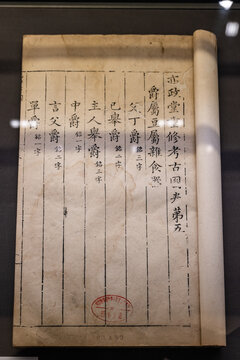 亦政堂重修考古圖卷第五
爵屬豆屬雜食器
父丁爵 銘三字
己舉爵 銘二字
主人舉爵 銘三字
中爵 銘一字
言父爵 銘三字
單爵 銘一字